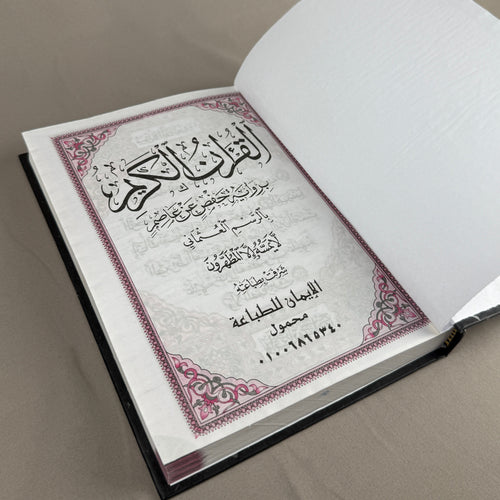 القرآن الكريم
برواية حفص عن عاصم
بالرسم العثماني
لا يمسه إلا المطهرون
شرفت بطباعته
الإيمان للطباعة
محمول
٠١٠٠٦٨٦٥٣٤٠